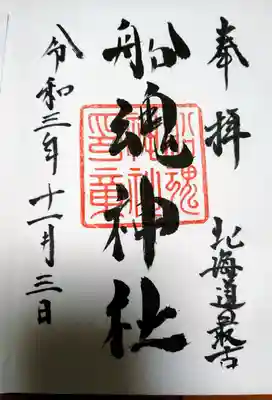 奉拝
北海道最古
船魂神社
船魂神社印章
令和三年十一月三日